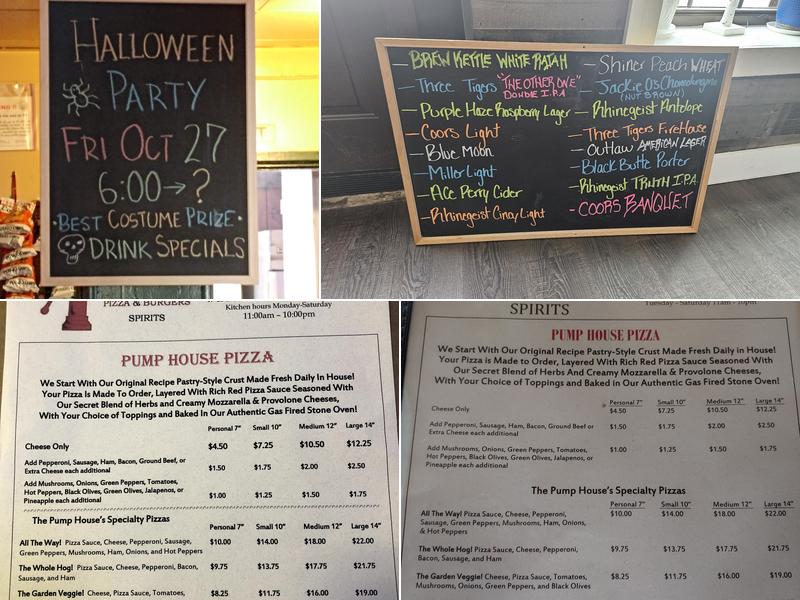 HALLOWEEN
PARTY
FRI OCT 27
6:00→?
·BEST COSTUME PRIZE·
DRINK SPECIALS
- BREW KETTLE WHITE RAJAH
- Three Tigers "THE OTHER ONE"
DOUBLE I.P.A
- Purple Haze Raspberry Lager
- Coors Light
- Blue Moon
- Miller Light
- ACE Perry Cider
- Rhinegeist Cincy Light
- Shiner Peach WHEAT
- Jackie O's
(NUT BROWN)
- Rhinegeist Antelope
- Three Tigers FireHouse
- Outlaw AMERICAN LAGER
- Black Butte Porter
- Rhinegeist TRUTH I.P.A.
- COORS BANQUET
PIZZA & BURGERS
SPIRITS
Kitchen hours Monday-Saturday
11:00am – 10:00pm
PUMP HOUSE PIZZA
We Start With Our Original Recipe Pastry-Style Crust Made Fresh Daily In House!
Your Pizza is Made to Order, Layered With Rich Red Pizza Sauce Seasoned With
Our Secret Blend of Herbs and Creamy Mozzarella & Provolone Cheeses,
With Your Choice of Toppings and Baked In Our Authentic Gas Fired Stone Oven!
Personal 7" Small 10" Medium 12" Large 14"
Cheese Only $4.50 $7.25 $10.50 $12.25
Add Pepperoni, Sausage, Ham, Bacon, Ground Beef, or
Extra Cheese each additional $1.50 $1.75 $2.00 $2.50
Add Mushrooms, Onions, Green Peppers, Tomatoes,
Hot Peppers, Black Olives, Green Olives, Jalapenos, or
Pineapple each additional $1.00 $1.25 $1.50 $1.75
The Pump House's Specialty Pizzas
Personal 7" Small 10" Medium 12" Large 14"
All The Way! Pizza Sauce, Cheese, Pepperoni, Sausage, $10.00 $14.00 $18.00 $22.00
Green Peppers, Mushrooms, Ham, Onions, and Hot Peppers
The Whole Hog! Pizza Sauce, Cheese, Pepperoni, Bacon, $9.75 $13.75 $17.75 $21.75
Sausage, and Ham
The Garden Veggie! Cheese, Pizza Sauce, Tomatoes, $8.25 $11.75 $16.00 $19.00
SPIRITS
Tuesday - Saturday 11am - 10pm
PUMP HOUSE PIZZA
We Start With Our Original Recipe Pastry-Style Crust Made Fresh Daily in House!
Your Pizza is Made to Order, Layered With Rich Red Pizza Sauce Seasoned With
Our Secret Blend of Herbs And Creamy Mozzarella & Provolone Cheeses,
With Your Choice of Toppings and Baked in Our Authentic Gas Fired Stone Oven!
Personal 7" Small 10" Medium 12" Large 14"
Cheese Only $4.50 $7.25 $10.50 $12.25
Add Pepperoni, Sausage, Ham, Bacon, Ground Beef or $1.50 $1.75 $2.00 $2.50
Extra Cheese each additional
Add Mushrooms, Onions, Green Peppers, Tomatoes, $1.00 $1.25 $1.50 $1.75
Hot Peppers, Black Olives, Green Olives, Jalapenos, or
Pineapple each additional
The Pump House's Specialty Pizzas
Personal 7" Small 10" Medium 12" Large 14"
All The Way! Pizza Sauce, Cheese, Pepperoni, $10.00 $14.00 $18.00 $22.00
Sausage, Green Peppers, Mushrooms, Ham, Onions,
& Hot Peppers
The Whole Hog! Pizza Sauce, Cheese, Pepperoni, $9.75 $13.75 $17.75 $21.75
Bacon, Sausage, and Ham
The Garden Veggie! Cheese, Pizza Sauce, Tomatoes, $8.25 $11.75 $16.00 $19.00
Mushrooms, Onions, Green Peppers, and Black Olives